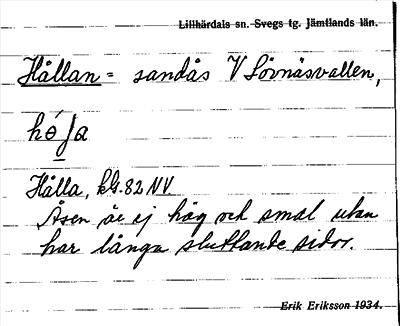 Lillhärdals sn. Svegs tg. Jämtlands län.
Hållan = sandås V Lövnäsvallen,
Hålla, kbl. 82 NV.
Åsen är ej hög och smal utan
har långa sluttande sidor.
Erik Eriksson 1934.